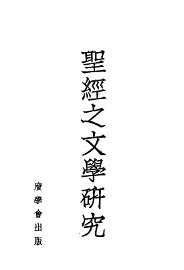 聖經之文學研究
廣學會出版